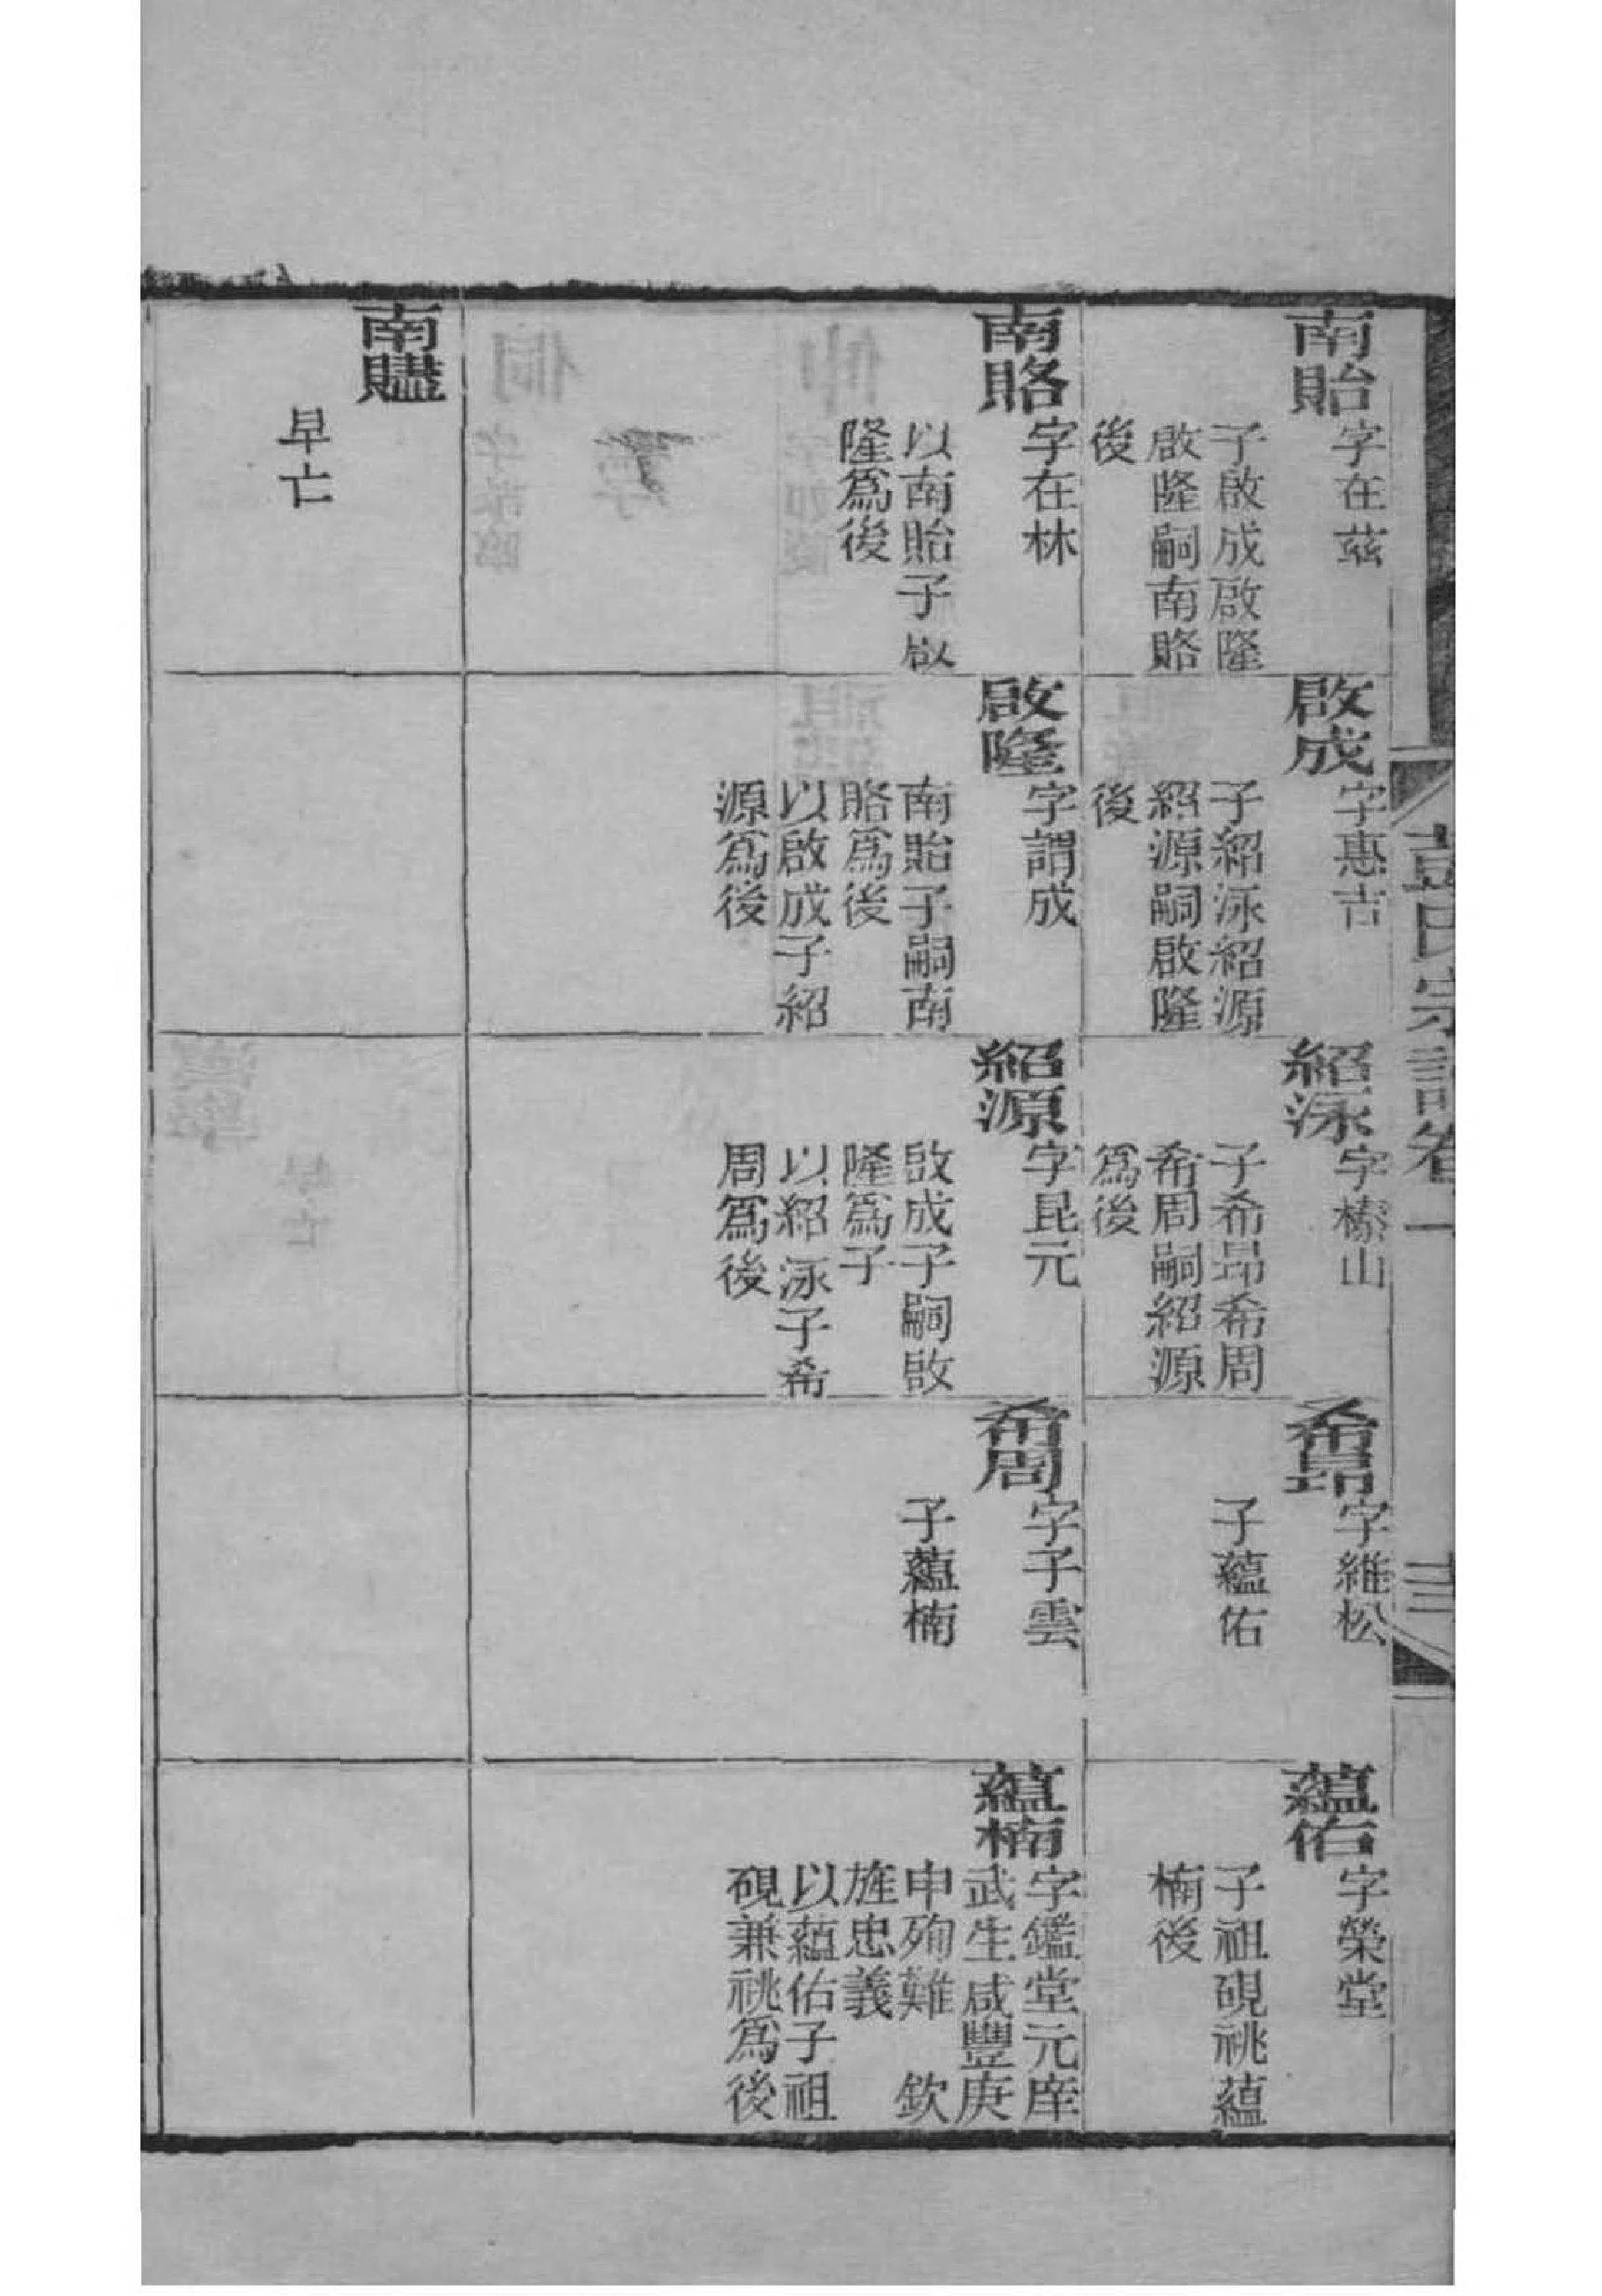 彭氏宗譜卷一
十三
南貽
字在茲
子啟成啟隆
啟隆嗣南賂
後
啟成
字惠吉
子紹泳紹源
紹源嗣啟隆
後
紹泳
字榛山
子希昂希周
希周嗣紹源
為後
希昂
字維松
子蘊佑
蘊佑
字榮堂
子祖硯祧蘊
楠後
南賂
字在林
以南貽子啟
隆為後
啟隆
字謂成
南貽子嗣南
賂為後
以啟成子紹
源為後
紹源
字昆元
啟成子嗣啟
隆為子
以紹泳子希
周為後
希周
字子雲
子蘊楠
蘊楠
字鑑堂元庠
武生咸豐庚
申殉難　欽
旌忠義
以蘊佑子祖
硯兼祧為後
南贐
早亡